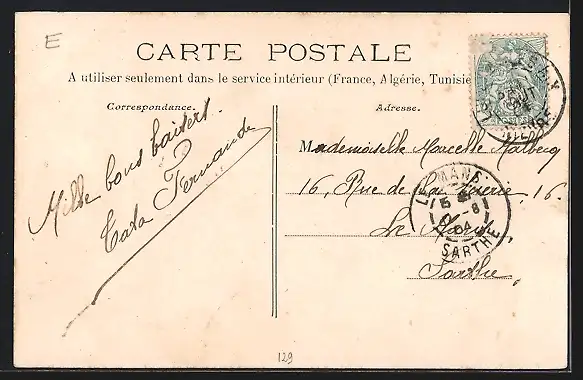 E
CARTE POSTALE
A utiliser seulement dans le service intérieur (France, Algérie, Tunisie
Correspondance.
Adresse.
Mille bons baisers
Tata Fernande
Mademoiselle Marcelle
16, Rue de la 16.
Le Mans
Sarthe
LE MANS
SARTHE
129